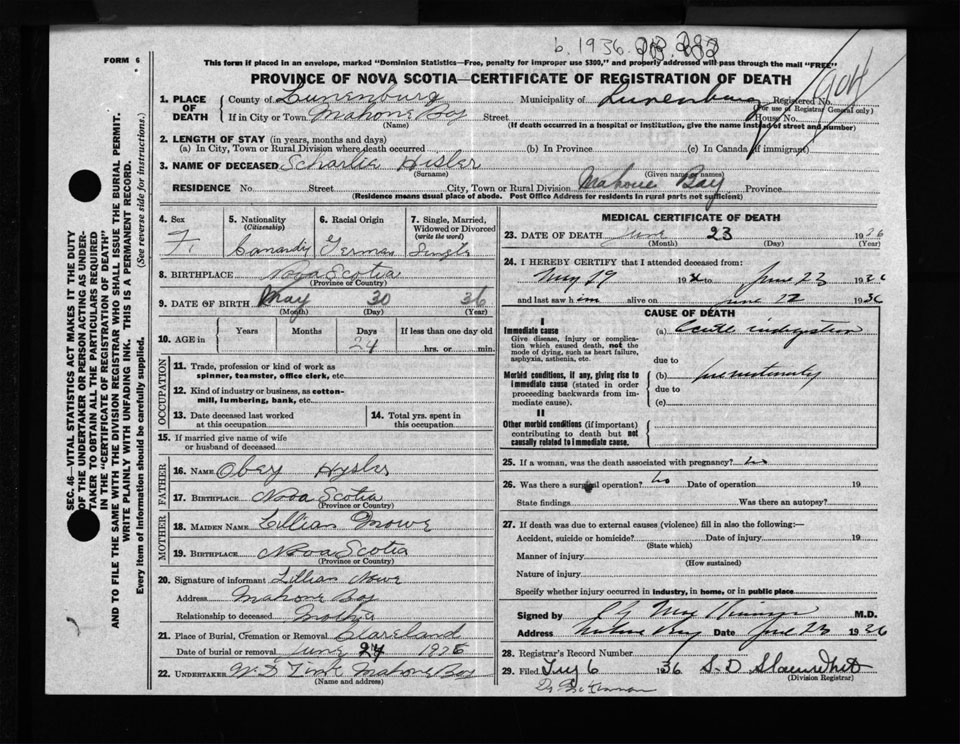 b. 1936.
FORM 6
This form if placed in an envelope, marked "Dominion Statistics—Free, penalty for improper use $300," and properly addressed will pass through the mail "FREE"
PROVINCE OF NOVA SCOTIA—CERTIFICATE OF REGISTRATION OF DEATH
SEC. 46—VITAL STATISTICS ACT MAKES IT THE DUTY
OF THE UNDERTAKER OR PERSON ACTING AS UNDER-
TAKER TO OBTAIN ALL THE PARTICULARS REQUIRED
IN THE "CERTIFICATE OF REGISTRATION OF DEATH"
AND TO FILE THE SAME WITH THE DIVISION REGISTRAR WHO SHALL ISSUE THE BURIAL PERMIT.
WRITE PLAINLY WITH UNFADING INK. THIS IS A PERMANENT RECORD.
Every item of Information should be carefully supplied. (See reverse side for instructions.)
1. PLACE OF DEATH County of Lunenburg Municipality of Lunenburg Registered No.
(For use of Registrar General only)
If in City or Town Mahone Bay Street House No.
(Name) (If death occurred in a hospital or institution, give the name instead of street and number)
2. LENGTH OF STAY (in years, months and days)
(a) In City, Town or Rural Division where death occurred (b) In Province (c) In Canada (if immigrant)
3. NAME OF DECEASED Hisler
(Surname) (Given name or names)
RESIDENCE No. Street City, Town or Rural Division Mahone Bay Province
(Residence means usual place of abode. Post Office Address for residents in rural parts not sufficient)
4. Sex 5. Nationality 6. Racial Origin 7. Single, Married,
(Citizenship) Widowed or Divorced
(write the word)
F. German Single
8. BIRTHPLACE Nova Scotia
(Province or Country)
9. DATE OF BIRTH May 30 36
(Month) (Day) (Year)
10. AGE in Years Months Days If less than one day old
24 hrs. or min.
OCCUPATION
11. Trade, profession or kind of work as
spinner, teamster, office clerk, etc.
12. Kind of industry or business, as cotton-
mill, lumbering, bank, etc.
13. Date deceased last worked
at this occupation
14. Total yrs. spent in
this occupation
15. If married give name of wife
or husband of deceased
FATHER
16. NAME Obey Hysler
17. BIRTHPLACE Nova Scotia
(Province or Country)
MOTHER
18. MAIDEN NAME Lillian Mowe
19. BIRTHPLACE Nova Scotia
(Province or Country)
20. Signature of informant Lillian Nowe
Address Mahone Bay
Relationship to deceased Mother
21. Place of Burial, Cremation or Removal Clareland
Date of burial or removal June 24 1936
22. UNDERTAKER Mahone Bay
(Name and address)
MEDICAL CERTIFICATE OF DEATH
23. DATE OF DEATH June 23 1936
(Month) (Day) (Year)
24. I HEREBY CERTIFY that I attended deceased from:
May 29 1936 to June 23 1936
and last saw him alive on June 22 1936
CAUSE OF DEATH
I
Immediate cause (a) Acute indigestion
Give disease, injury or complica-
tion which caused death, not the
mode of dying, such as heart failure,
asphyxia, asthenia, etc.
due to
Morbid conditions, if any, giving rise to
immediate cause (stated in order
proceeding backwards from im-
mediate cause).
(b) prematurity
due to
(c)
II
Other morbid conditions (if important)
contributing to death but not
causally related to immediate cause.
25. If a woman, was the death associated with pregnancy? no
26. Was there a surgical operation? no Date of operation 19
State findings Was there an autopsy?
27. If death was due to external causes (violence) fill in also the following:—
Accident, suicide or homicide? Date of injury 19
(State which)
Manner of injury
(How sustained)
Nature of injury
Specify whether injury occurred in industry, in home, or in public place
Signed by M.D.
Address Mahone Bay Date June 23 1936
28. Registrar's Record Number
29. Filed 6 1936
(Division Registrar)